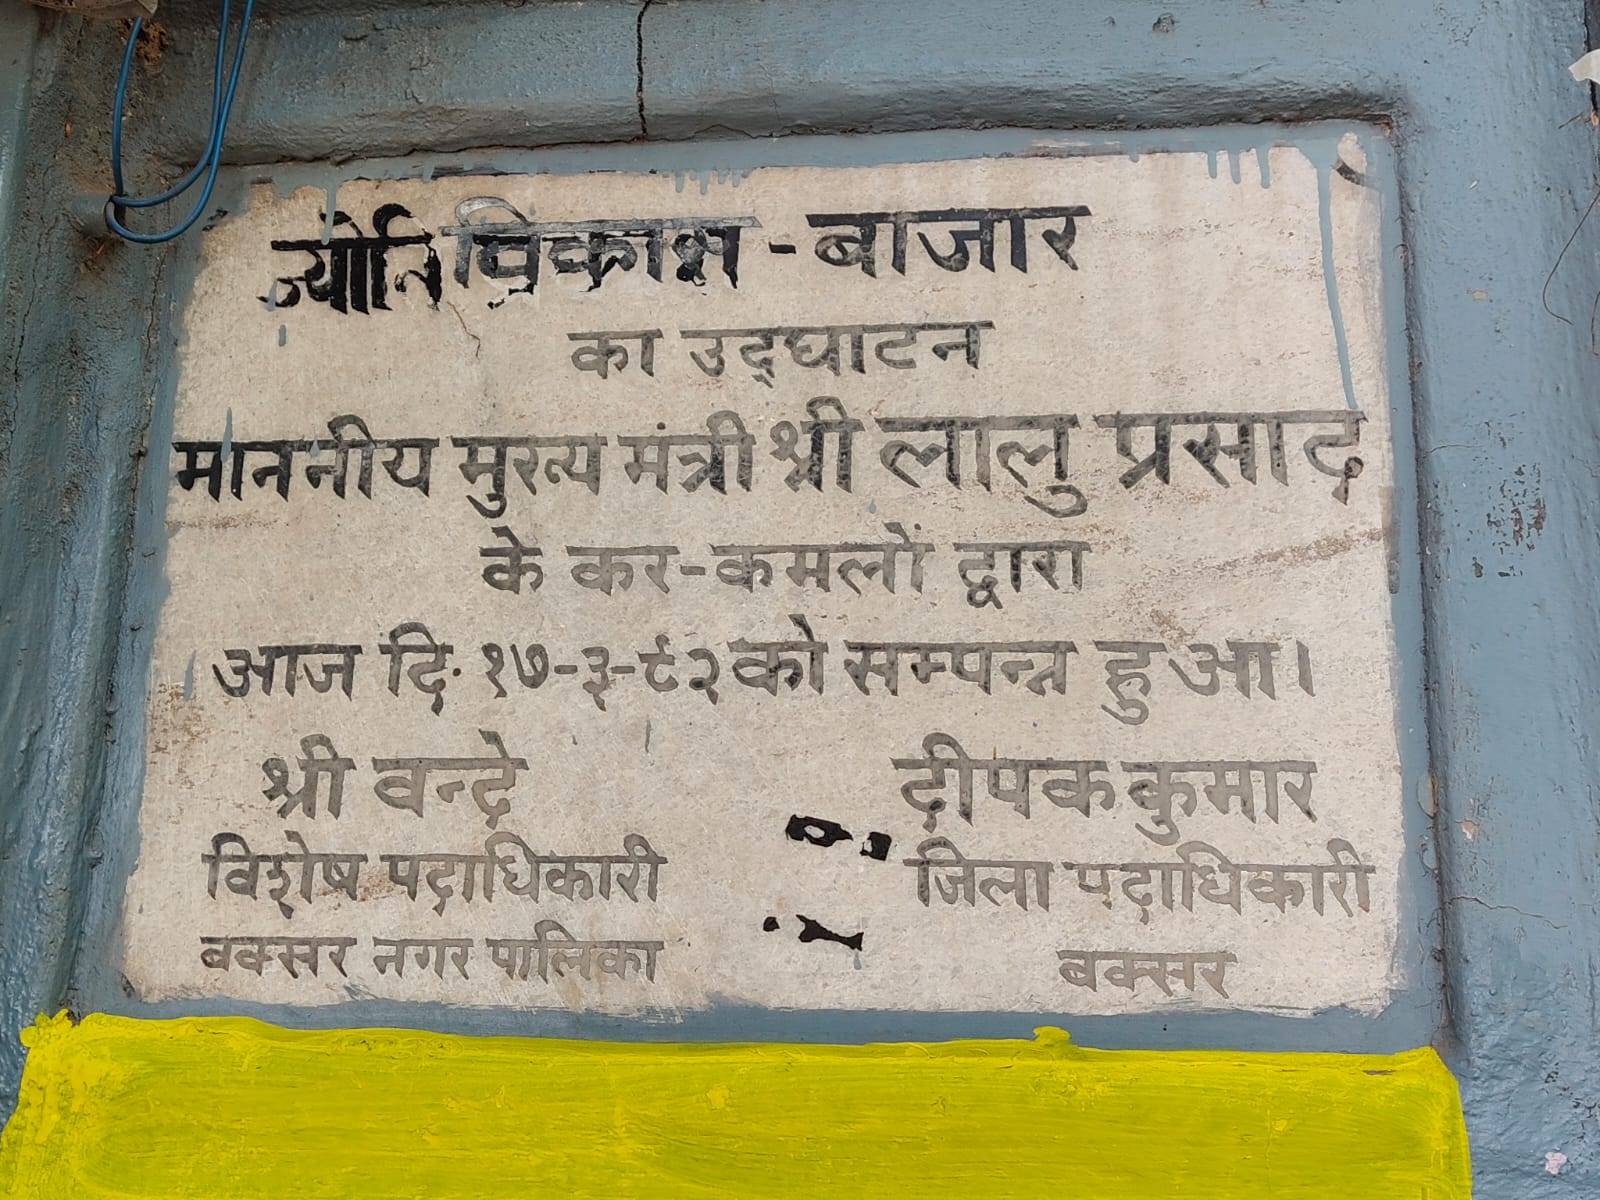 ज्योति विकास - बाजार
का उद्‌घाटन
माननीय मुख्य मंत्री श्री लालु प्रसाद
के कर-कमलों द्वारा
आज दि. १७-३-९२ को सम्पन्न हुआ।
श्री वन्दे
दीपक कुमार
विशेष पदाधिकारी
जिला पदाधिकारी
बक्सर नगर पालिका
बक्सर